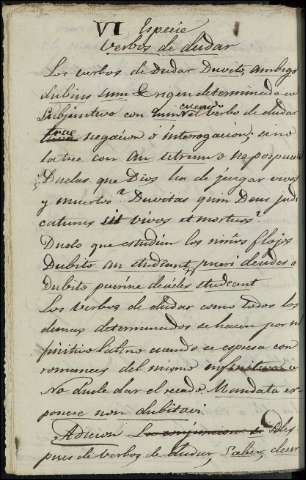 VI Especie
Verbos de dudar
Los verbos de Dudar Duvito, ambigo
dubius sum rigen determinado en
Subjuntivo con cuando verbo de dudar
trae negacion ó interrogacion; si no
la trae con an utrum o ne pospues
¿Dudas que Dios ha de juzgar vivos
y muertos? Duvitas quin Deus judi
caturus sit vivos et mortuos?
Dudo que estudien los niños flojos
Dubito an studeant, pueri desides o
Dubito puerine desides studeant
Los verbos de dudar como todos los
demas determinados se hacen por in
finitivo latino cuando se espresa con
romances del mismo infinitivo
No dude dar el recado Mandata ex
ponere non dubitavi
Adicion La conjuncion Des
pues de verbos de dudar, Saber, decir